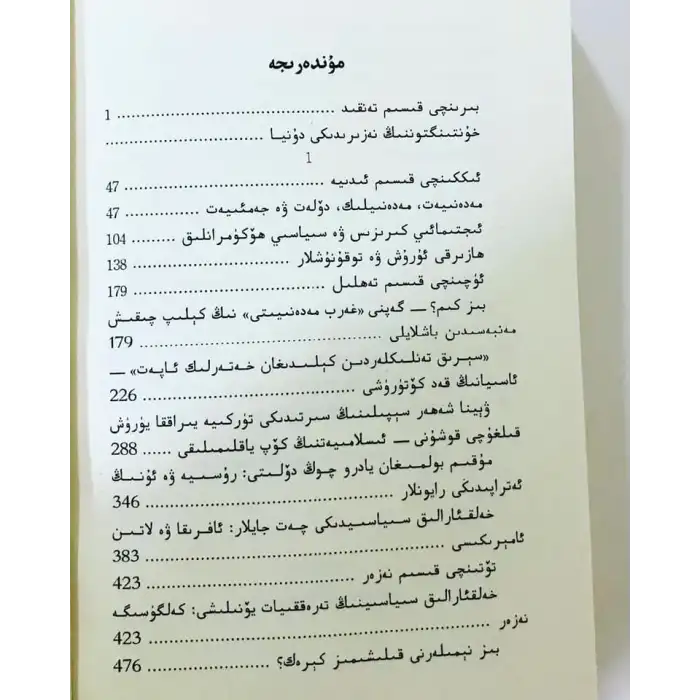 مۇندەرىجە
بىرىنچى قىسىم تەنقىد ........................................ 1
خۇنتىنگتوننىڭ نەزىرىدىكى دۇنيا ............................
1
ئىككىنچى قىسىم ئىدىيە ................................... 47
مەدەنىيەت، مەدەنىيلىك، دۆلەت ۋە جەمئىيەت ............. 47
ئىجتىمائىي كىرىزىس ۋە سىياسىي ھۆكۈمرانلىق ......... 104
ھازىرقى ئۇرۇش ۋە توقۇنۇشلار ........................... 138
ئۈچىنچى قىسىم تەھلىل ................................... 179
بىز كىم؟ — گەپنى «غەرب مەدەنىيىتى» نىڭ كېلىپ چىقىش
مەنبەسىدىن باشلايلى ..................................... 179
«سېرىق تەنلىكلەردىن كېلىدىغان خەتەرلىك ئاپەت» —
ئاسىيانىڭ قەد كۆتۈرۈشى ................................. 226
ۋېينا شەھەر سېپىلىنىڭ سىرتىدىكى تۈركىيە يىراققا يۈرۈش
قىلغۇچى قوشۇنى — ئىسلامىيەتنىڭ كۆپ ياقلىمىلىقى ...... 288
مۇقىم بولمىغان يادرو چوڭ دۆلىتى: رۇسىيە ۋە ئۇنىڭ
ئەتراپىدىكى رايونلار ..................................... 346
خەلقئارالىق سىياسىيدىكى چەت جايلار: ئافرىقا ۋە لاتىن
ئامېرىكىسى ............................................. 383
تۆتىنچى قىسىم نەزەر ..................................... 423
خەلقئارالىق سىياسىينىڭ تەرەققىيات يۆنىلىشى: كەلگۈسىگە
نەزەر ................................................... 423
بىز نېمىلەرنى قىلىشىمىز كېرەك؟ ......................... 476